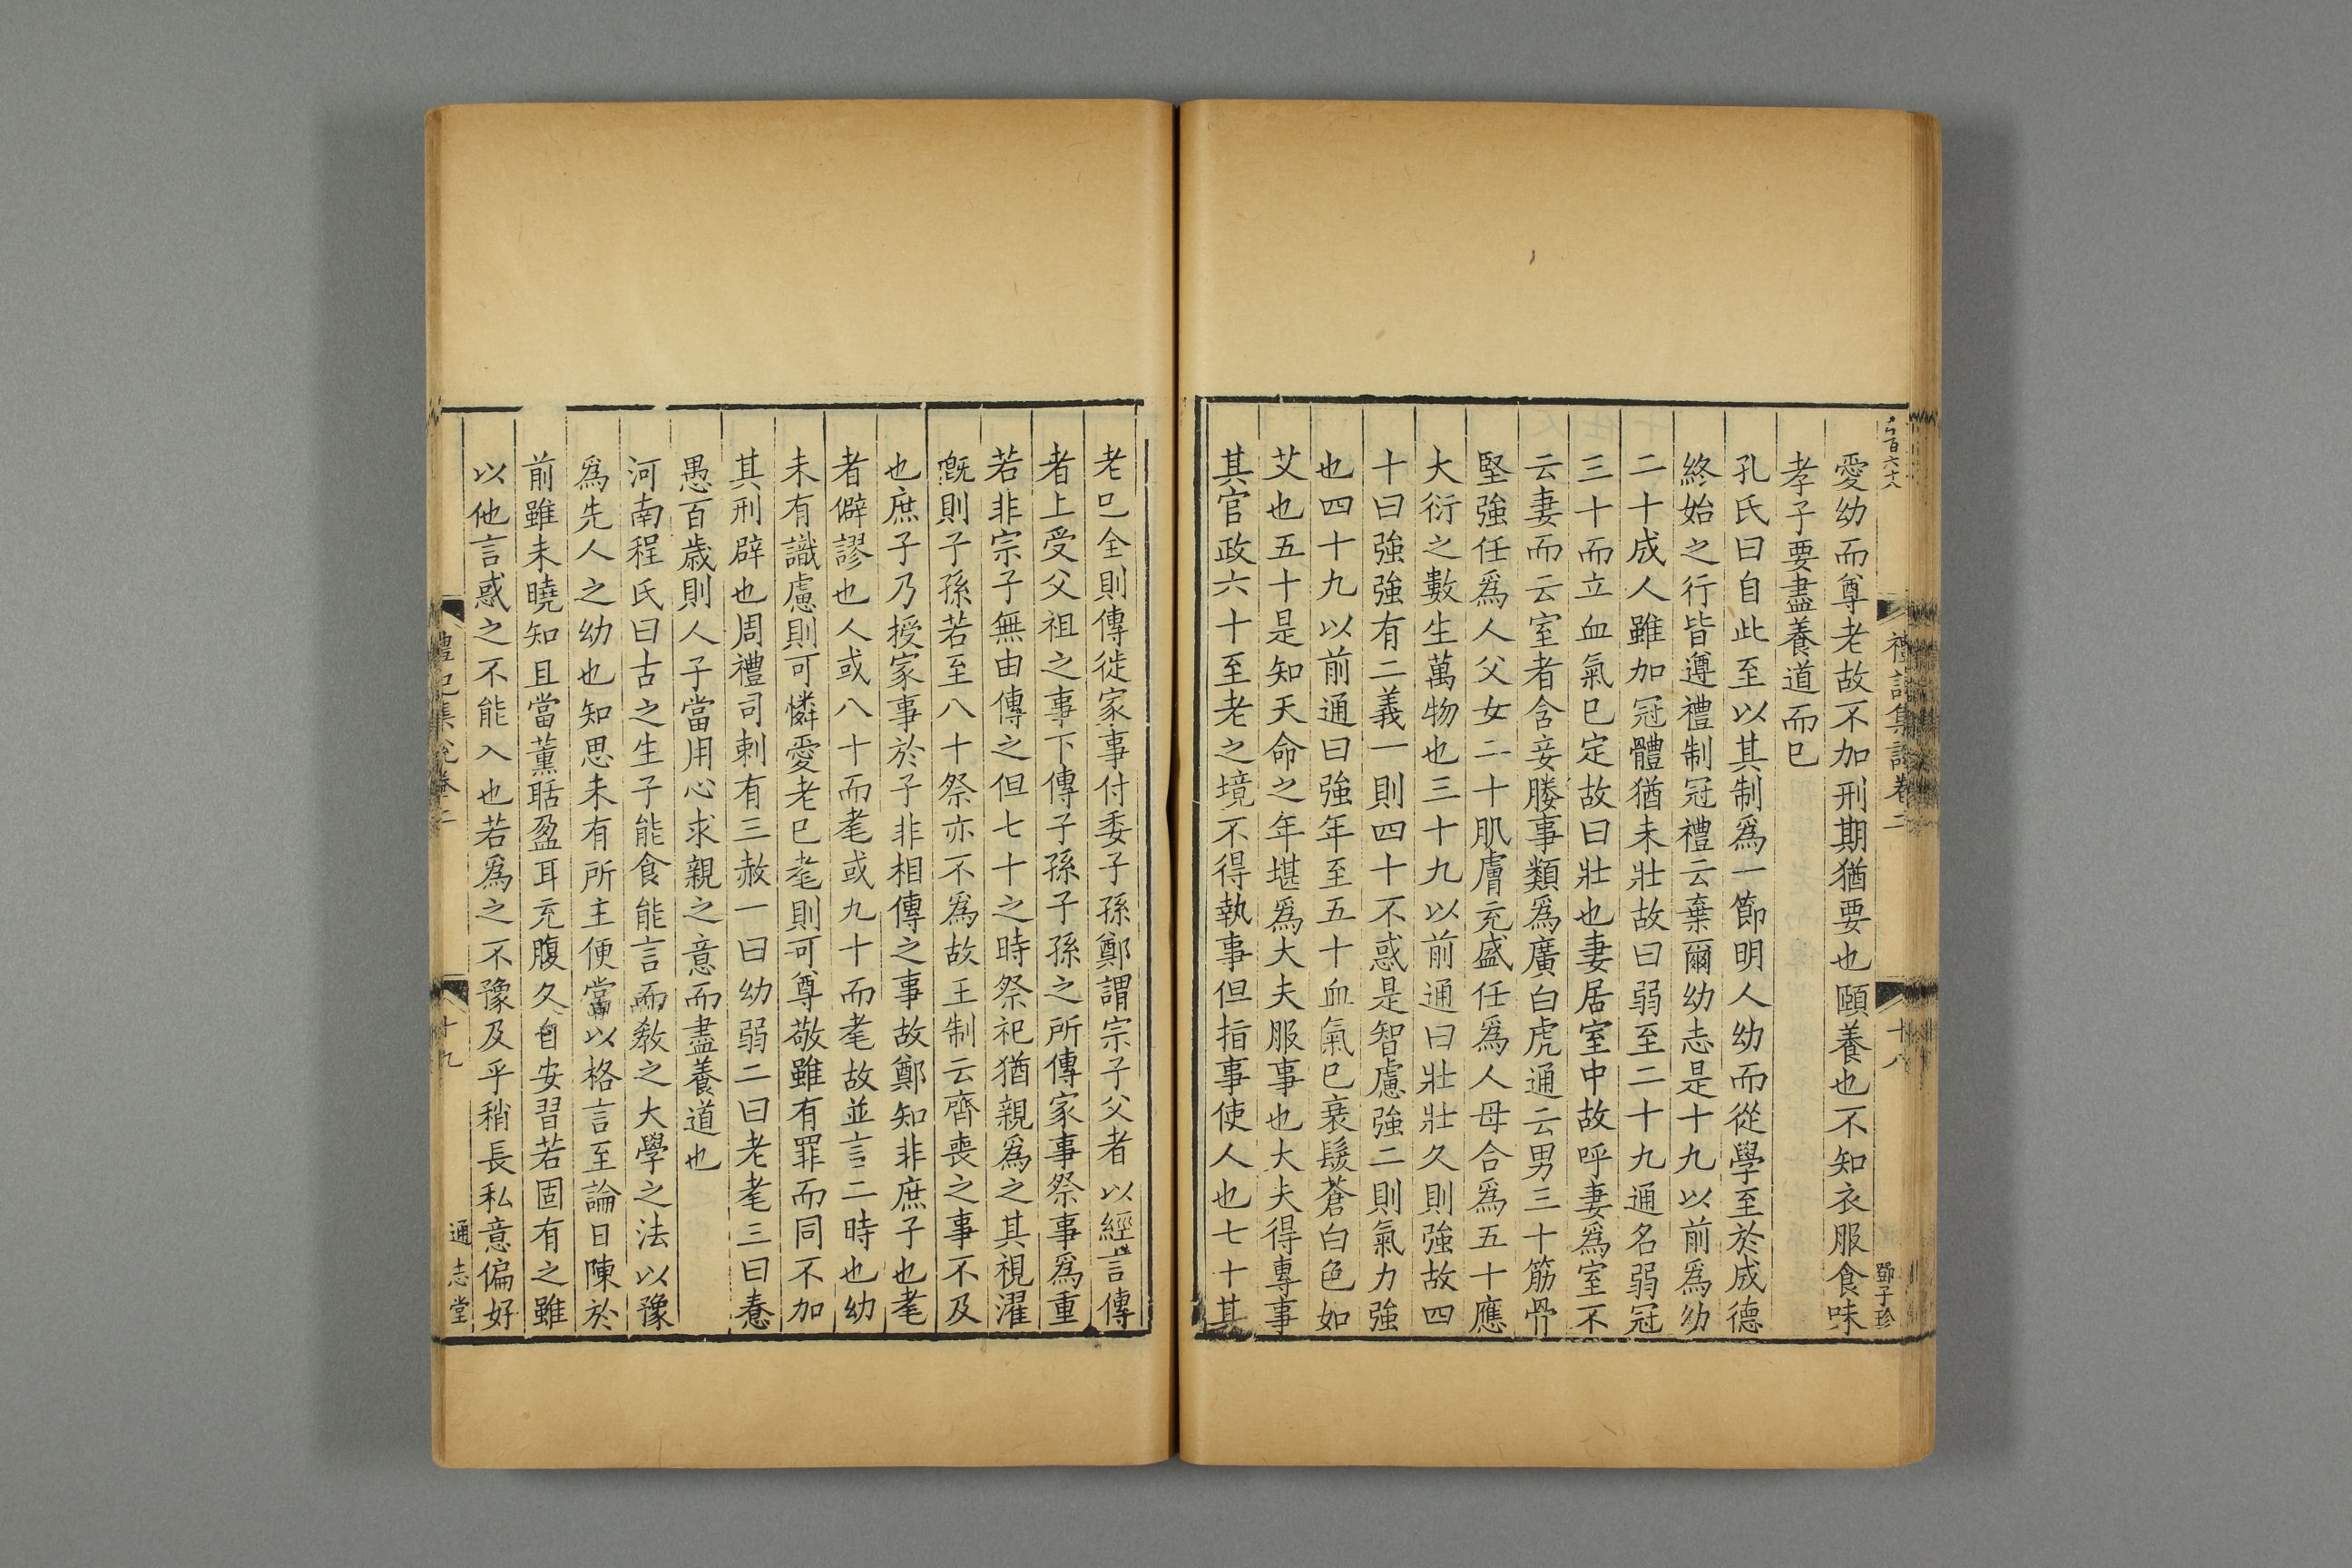 百六十八
禮記集說卷二
十八
鄧子珍
愛幼而尊老故不加刑期猶要也頤養也不知衣服食味
孝子要盡養道而已
孔氏曰自此至以其制爲一節明人幼而從學至於成德
終始之行皆遵禮制冠禮云棄爾幼志是十九以前爲幼
二十成人雖加冠體猶未壯故曰弱至二十九通名弱冠
三十而立血氣已定故曰壯也妻居室中故呼妻爲室不
云妻而云室者含妾媵事類爲廣白虎通云男三十筋骨
堅強任爲人父女二十肌膚充盛任爲人母合爲五十應
大衍之數生萬物也三十九以前通曰壯壯久則強故四
十曰強強有二義一則四十不惑是智慮強二則氣力強
也四十九以前通曰強年至五十血氣已衰髮蒼白色如
艾也五十是知天命之年堪爲大夫服事也大夫得專事
其官政六十至老之境不得執事但指事使人也七十其
老已全則傳徙家事付委子孫鄭謂宗子父者以經言傳
者上受父祖之事下傳子孫子孫之所傳家事祭事爲重
若非宗子無由傳之但七十之時祭祀猶親爲之其視濯
漑則子孫若至八十祭亦不爲故王制云齊喪之事不及
也庶子乃授家事於子非相傳之事故鄭知非庶子也耄
者僻謬也人或八十而耄或九十而耄故並言二時也幼
未有識慮則可憐愛老已耄則可尊敬雖有罪而同不加
其刑辟也周禮司剌有三赦一曰幼弱二曰老耄三曰惷
愚百歲則人子當用心求親之意而盡養道也
河南程氏曰古之生子能食能言而敎之大學之法以豫
爲先人之幼也知思未有所主便當以格言至論日陳於
前雖未曉知且當薰聒盈耳充腹久自安習若固有之雖
以他言惑之不能入也若爲之不豫及乎稍長私意偏好
禮記集說卷二
十九
通志堂